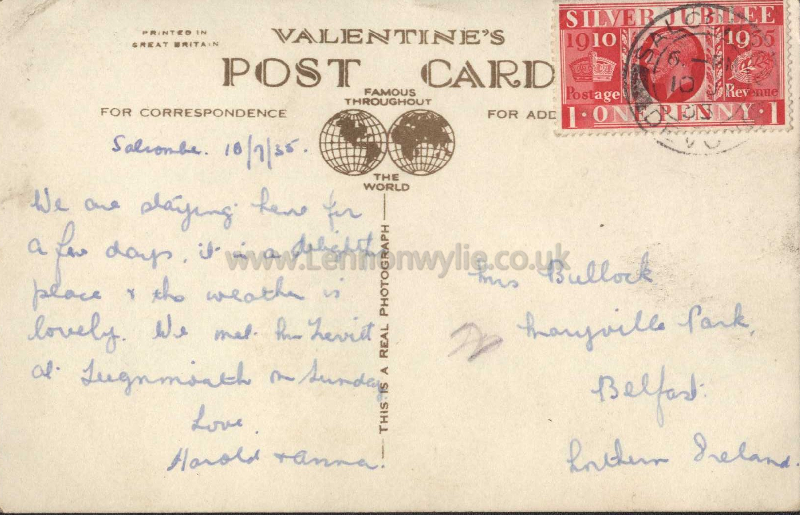 PRINTED IN
GREAT BRITAIN
VALENTINE'S
POST CARD
FAMOUS
THROUGHOUT
THE
WORLD
FOR CORRESPONDENCE
FOR ADD
SILVER JUBILEE
1910 1935
Postage Revenue
1 · ONE PENNY · 1
Salcombe. 10/7/35.
We are staying here for
a few days, it is a delightful
place & the weather is
lovely. We met Mr Levitt
at Teignmouth on Sunday
Love.
Harold & Anna.
THIS IS A REAL PHOTOGRAPH
Mrs Bullock
Maryville Park,
Belfast.
Northern Ireland.
www.Lennonwylie.co.uk